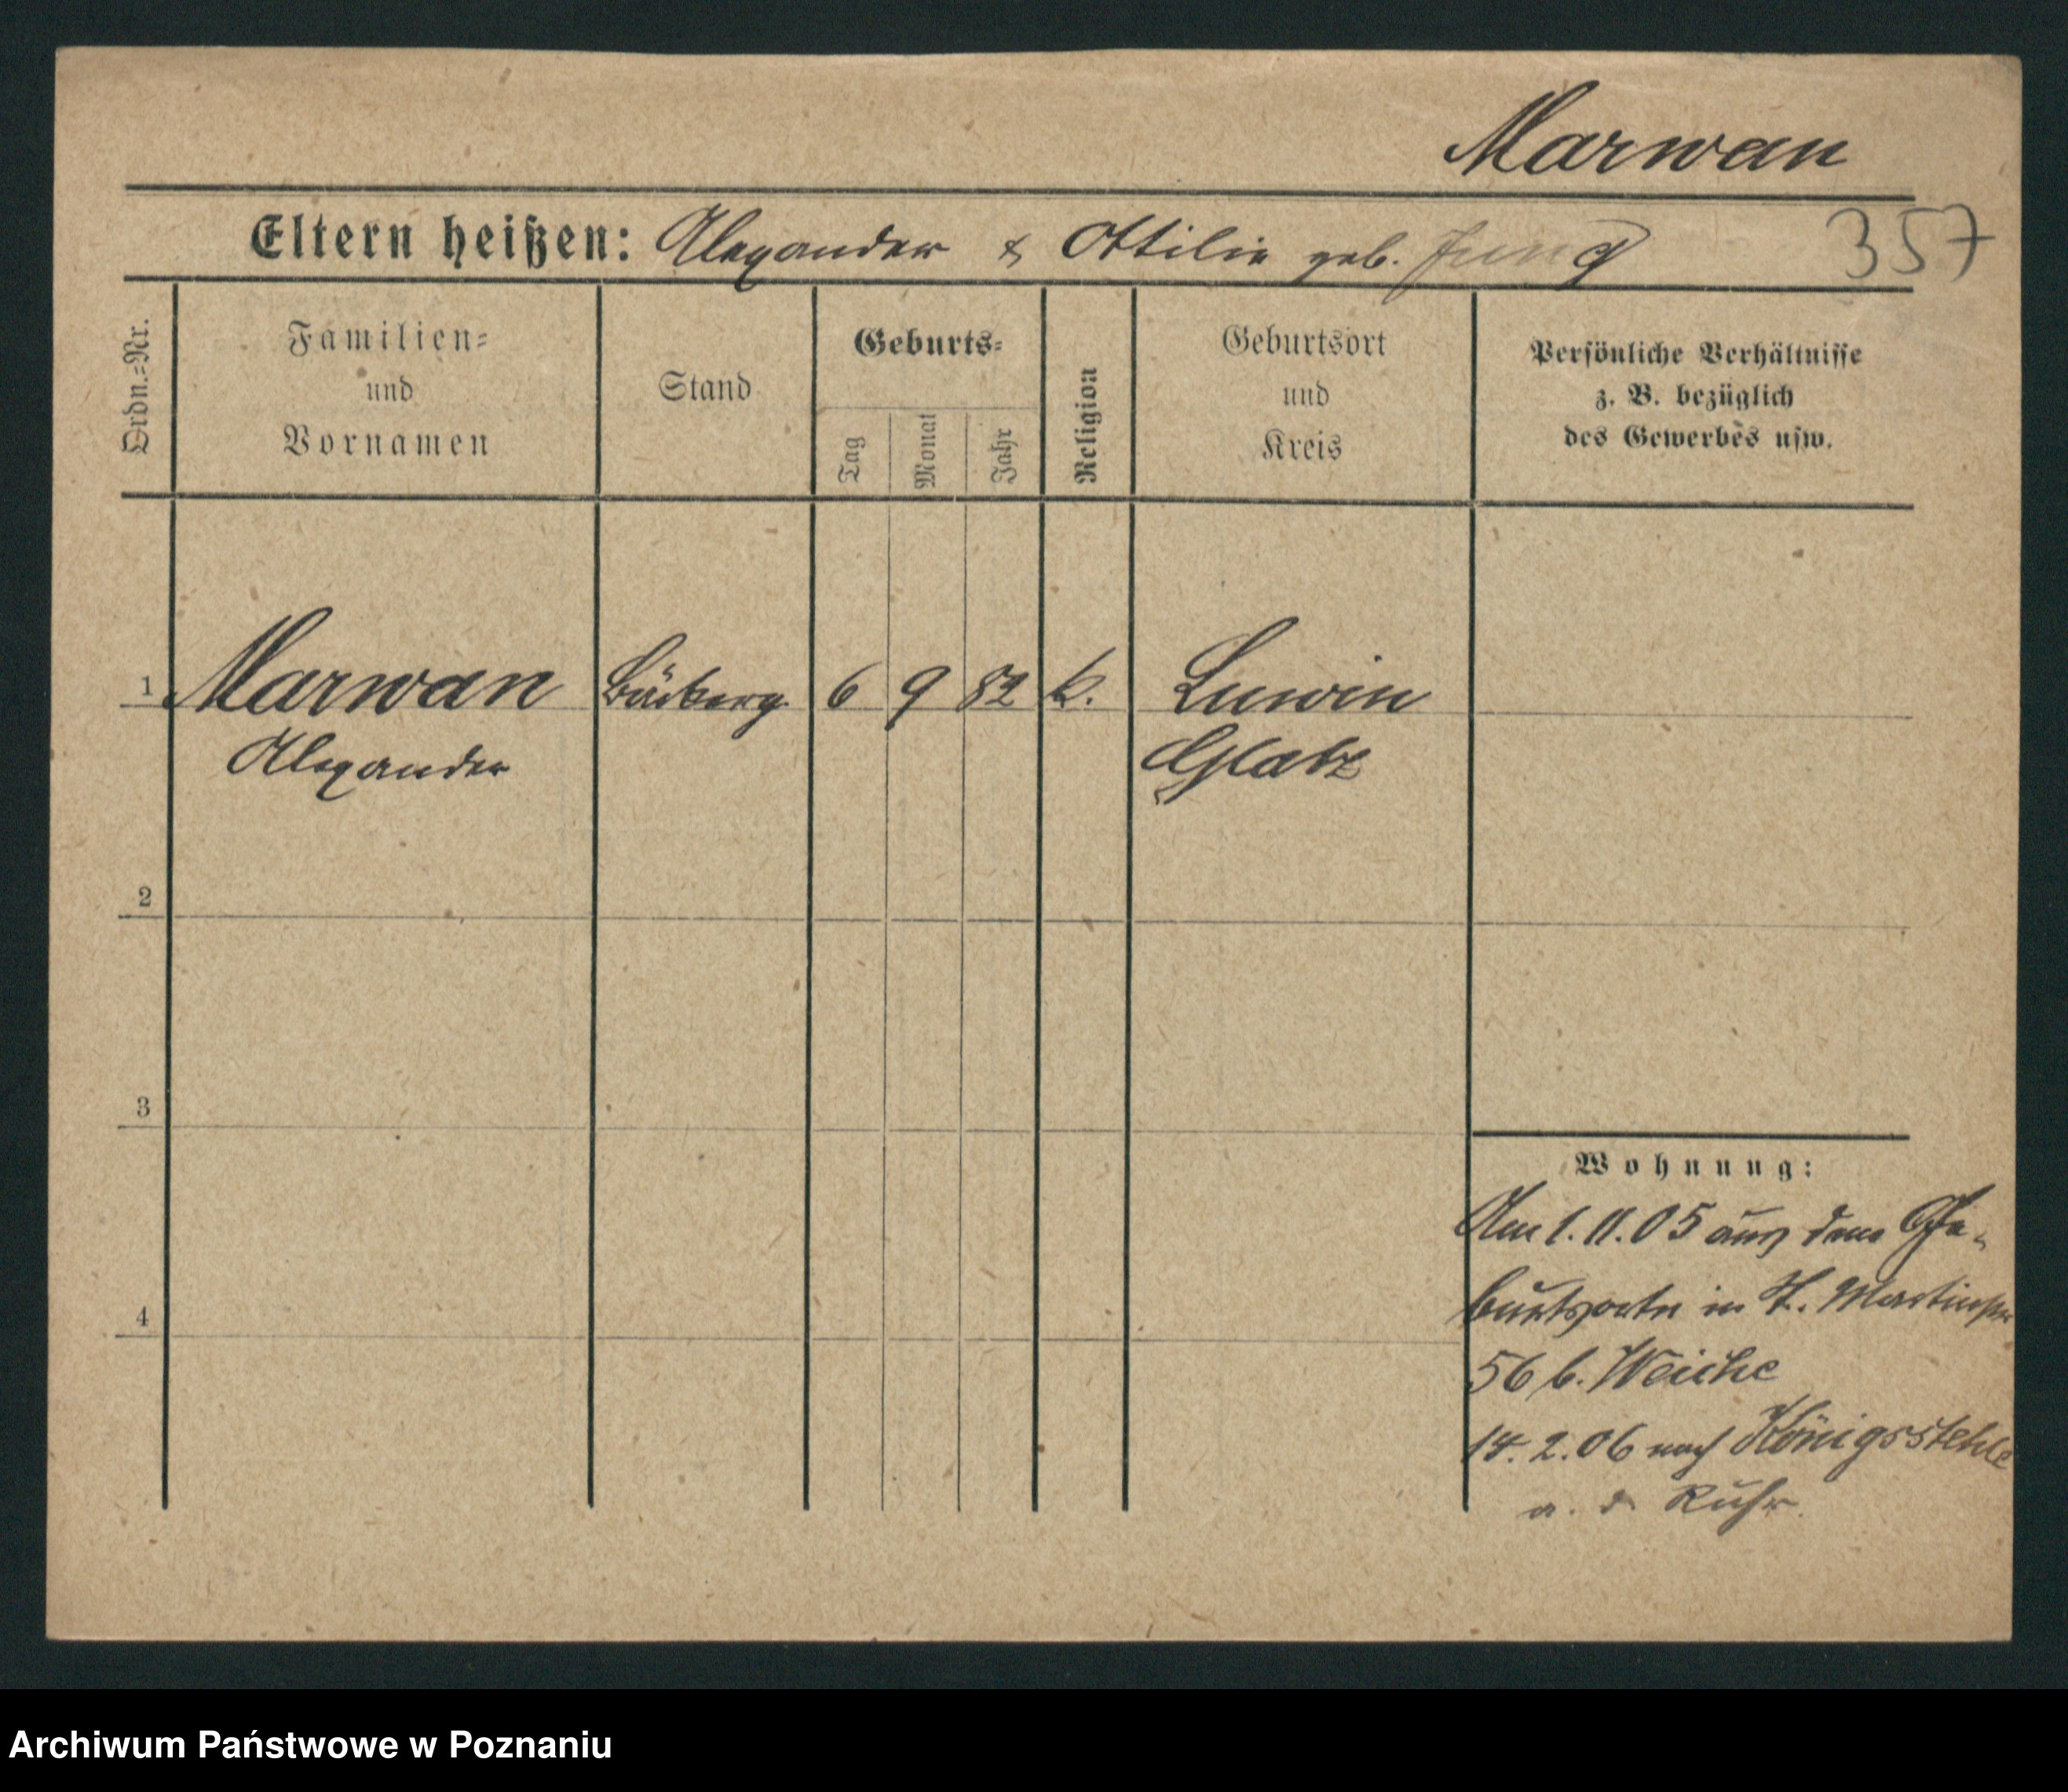 Marwan
Eltern heißen: Alexander & Ottilie geb. Jung
357
Ordn.-Nr.
Familien-
und
Vornamen
Stand
Geburts-
Tag
Monat
Jahr
Religion
Geburtsort
und
Kreis
Persönliche Verhältnisse
z. B. bezüglich
des Gewerbes usw.
1 Marwan Bäckerg. 6 9 82 k. Luwin
Alexander Glatz
2
3
4
Wohnung:
Am 1.11.05 aus dem Ge-
burtsorte in St. Martinstr
56 b. Weiche
14.2.06 nach Königsstehle
a. d. Ruhr.
Archiwum Państwowe w Poznaniu